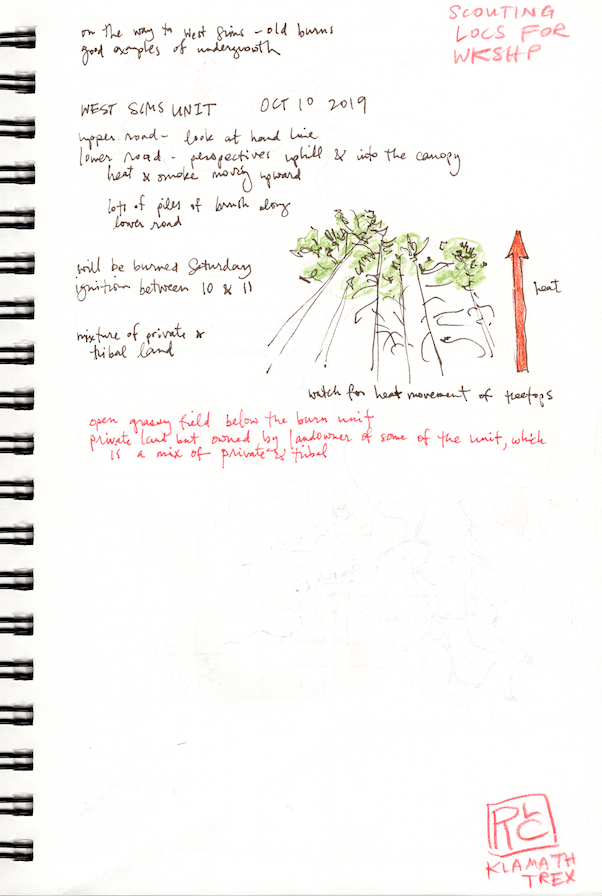 on the way to West Sims - old burns
good examples of undergrowth
SCOUTING
LOCS FOR
WKSHP
WEST SIMS UNIT OCT 10 2019
upper road - look at hand line
lower road - perspectives uphill & into the canopy
heat & smoke moving upward
lots of piles of brush along
lower road
will be burned Saturday
ignition between 10 & 11
mixture of private &
tribal land
heat
watch for heat movement of treetops
open grassy field below the burn unit
private land but owned by landowner of some of the unit, which
is a mix of private & tribal
RLC
KLAMATH
TREX